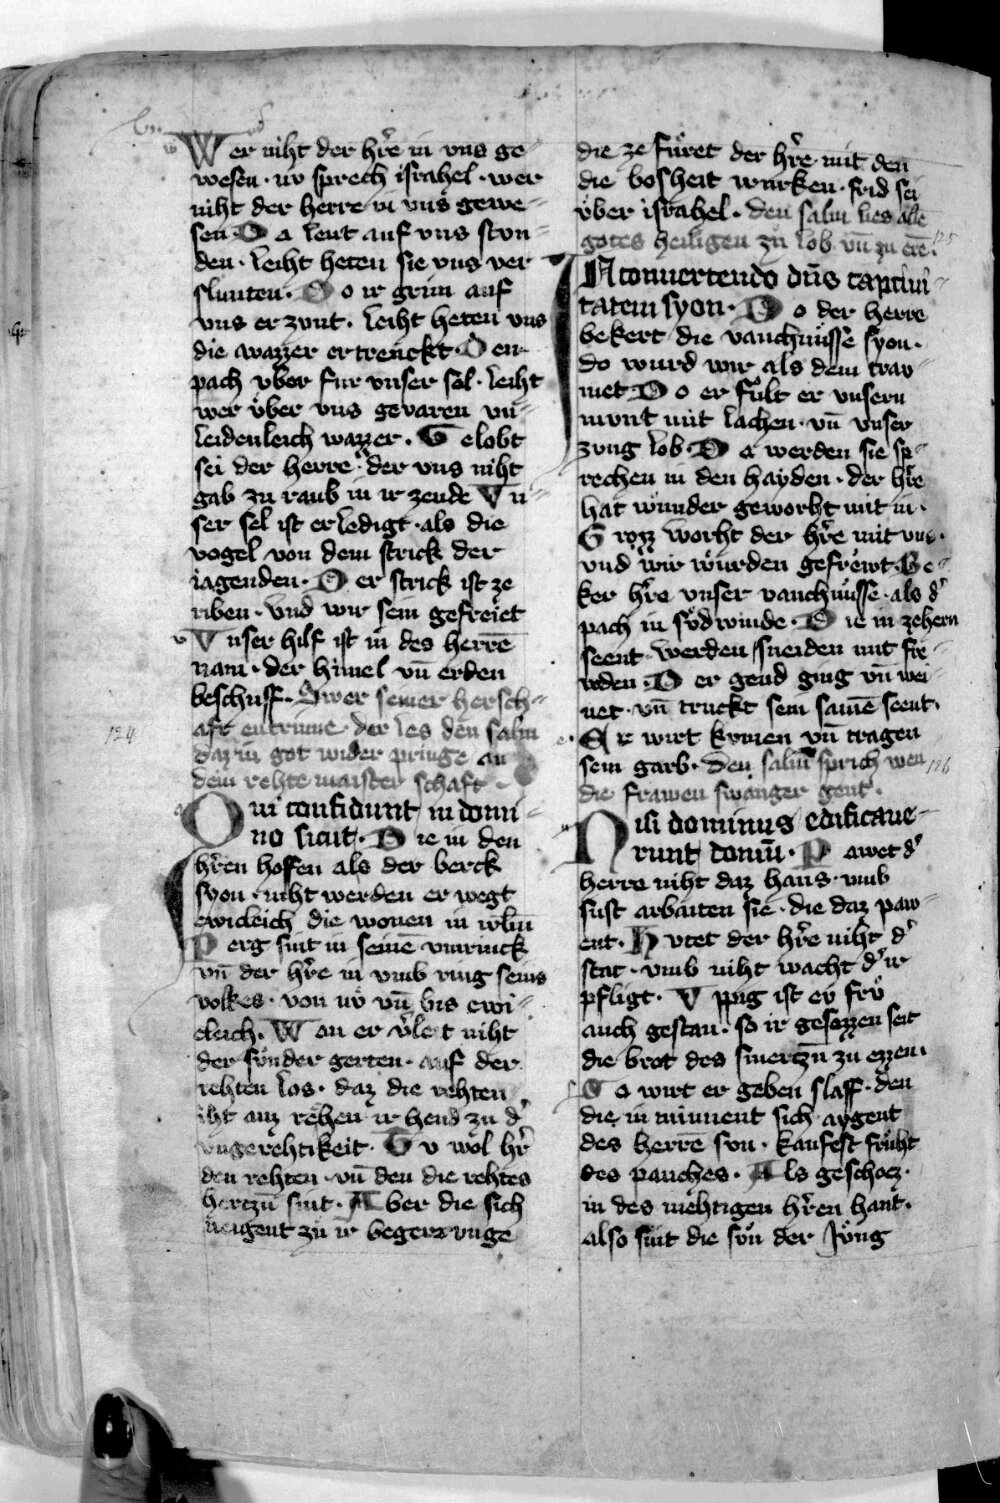 Wer niht der hr̄e in vns ge-
wesen · nv sprech israhel · wer
niht der herre in vns gewe-
sen Da leut auf vns stvn-
den · leiht heten sie vns ver
slunten · Do ir grim auf
vns erzvnt · leiht heten vns
die wazzer ertrenckt · Den
pach vber fur vnser sel · leiht
wer vͤber vns gevaren vn-
leidenleich wazzer · Gelobt
sei der herre · der vns niht
gab zu raub in ir zende Vn-
ser sel ist erledigt · als die
vogel von dem strick der
iagenden · Der strick ist ze
riben · vnd wir sein gefreiet
Vnser hilf ist in des herrē
nam · der himel vn̄ erden
beschuff · Swer seiner hersch-
aft entrinne · der les den salm
daz in got wider pringe an
dein rehte maister schaft ·
124
Qui confidunt in domi-
no sicut · Die in den
hr̄en hoffen als der berck
syon · niht werden erwegt
ewicleich die wonen in irl̄m
Perg sint in seinē vmrinck
vn̄ der hr̄e in vmb ring seins
volkes · von nv vn̄ bis ewi-
cleich · Wan er v̓let niht
der sunder gerten · auf der
rehten los · daz die rehten
iht auz rehen ir hend zu d̓
vngerehtikeit · Tu wol hr̄
den rehten · vn̄ den die rehtes
hertzn̄ sint · Aber die sich
naigent zu ir begerrvnge
die ze fuͤret der hr̄e mit den
die bosheit wurken · frid sei
vͤber israhel · den salm lies alle
gotes heiligen zu lob vn̄ zu ere ·
125
IN convertendo dn̄s captivi-
tatem syon · Do der herre
bekert die vanchnuͤsse syon ·
do wurd wir als dem trav-
met Do erfult er vnsern
mvnt mit lachen · vn̄ vnser
zvng lob · Da werden sie sp-
rechen in den hayden · der hr̄e
hat wunder geworht mit in ·
Grozz worht der hr̄e mit vns ·
vnd wir wuͤrden gefrewt · Be-
ker hr̄e vnser vanchnuͤsse · als d̓
pach in sudwinde · Die in zehern
seent werden sneiden mit fre-
vden · Der gend ging vn̄ wei-
net · vn̄ truckt sein samē seent ·
Er wirt kvmen vn̄ tragen
sein garb · Den salm sprich wen
die frawen swanger gent ·
126
Nisi dominus edificave-
runt domū · Pawet d̓
herre niht daz haus · vmb
sust arbaiten sie · die daz paw-
ent · Hvtet der hr̄e niht d̓
stat · vmb niht wacht d̓ ir
pfligt · Vppig ist ev frv
auch gestan · so ir gesezzen seit
die brot des smertzn̄ zu ezzen ·
So wirt er geben slaff · den
die in minnent sich aygent
des herrē svn · kaufest fruht
des pauches · Als geschoz ·
in des mehtigen hr̄en hant ·
also sint die svn der Jvng